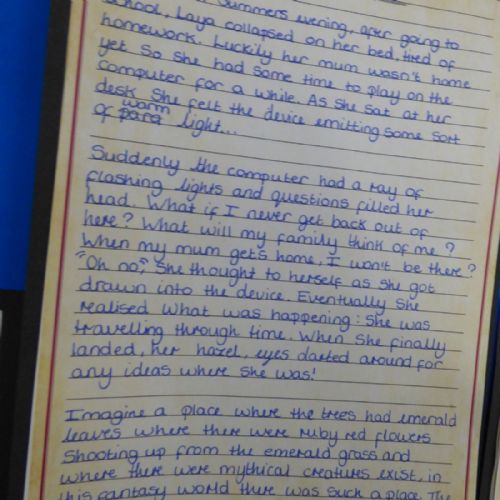 Summers evening, after going to
school, Laya collapsed on her bed, tired of
homework. Luckily her mum wasn't home
yet so she had some time to play on the
computer for a while. As she sat at her
desk she felt the device emitting some sort
of warm light...
Suddenly the computer had a ray of
flashing lights and questions filled her
head. What if I never get back out of
here? What will my family think of me?
When my mum gets home, I won't be there?
"Oh no," she thought to herself as she got
drawn into the device. Eventually she
realised what was happening: she was
travelling through time. When she finally
landed, her hazel, eyes darted around for
any ideas where she was!
Imagine a place where the trees had emerald
leaves where there were ruby red flowers
shooting up from the emerald grass and
where there were mythical creatures exist, in
this fantasy world there was such a place. The